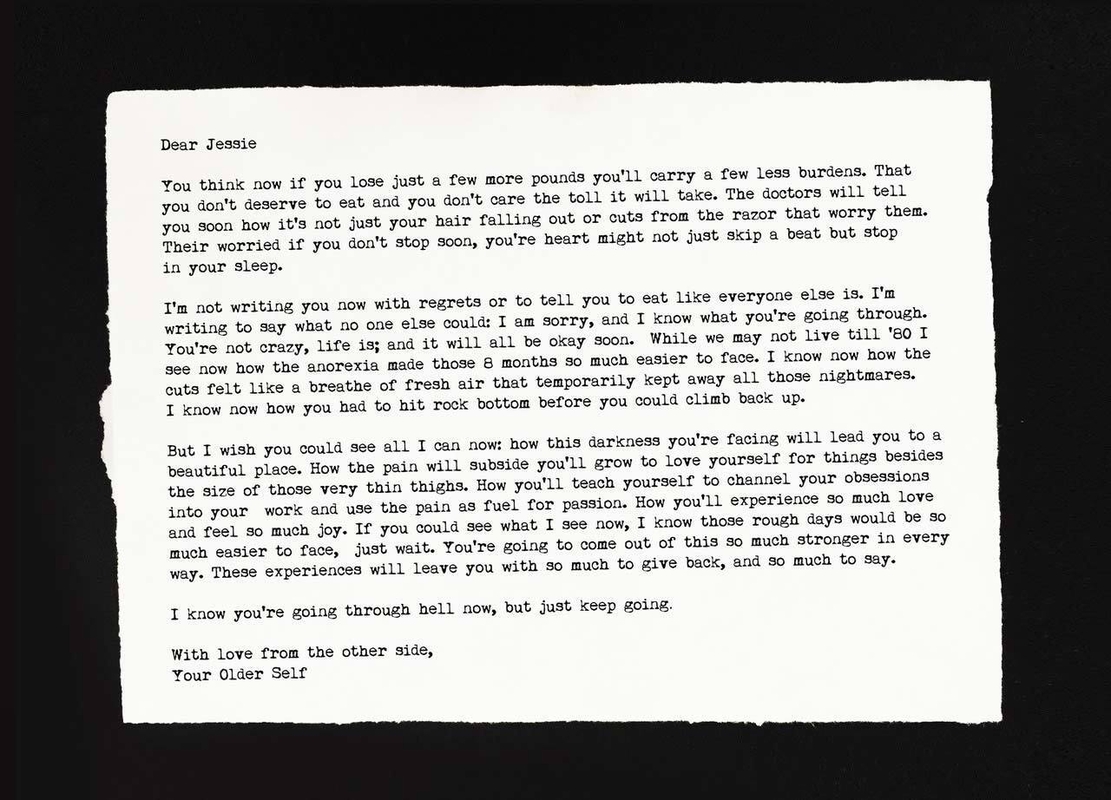 Dear Jessie
You think now if you lose just a few more pounds you'll carry a few less burdens. That
you don't deserve to eat and you don't care the toll it will take. The doctors will tell
you soon how it's not just your hair falling out or cuts from the razor that worry them.
Their worried if you don't stop soon, you're heart might not just skip a beat but stop
in your sleep.
I'm not writing you now with regrets or to tell you to eat like everyone else is. I'm
writing to say what no one else could: I am sorry, and I know what you're going through.
You're not crazy, life is; and it will all be okay soon.  While we may not live till '80 I
see now how the anorexia made those 8 months so much easier to face. I know now how the
cuts felt like a breathe of fresh air that temporarily kept away all those nightmares.
I know now how you had to hit rock bottom before you could climb back up.
But I wish you could see all I can now: how this darkness you're facing will lead you to a
beautiful place. How the pain will subside you'll grow to love yourself for things besides
the size of those very thin thighs. How you'll teach yourself to channel your obsessions
into your  work and use the pain as fuel for passion. How you'll experience so much love
and feel so much joy. If you could see what I see now, I know those rough days would be so
much easier to face,  just wait. You're going to come out of this so much stronger in every
way. These experiences will leave you with so much to give back, and so much to say.
I know you're going through hell now, but just keep going.
With love from the other side,
Your Older Self